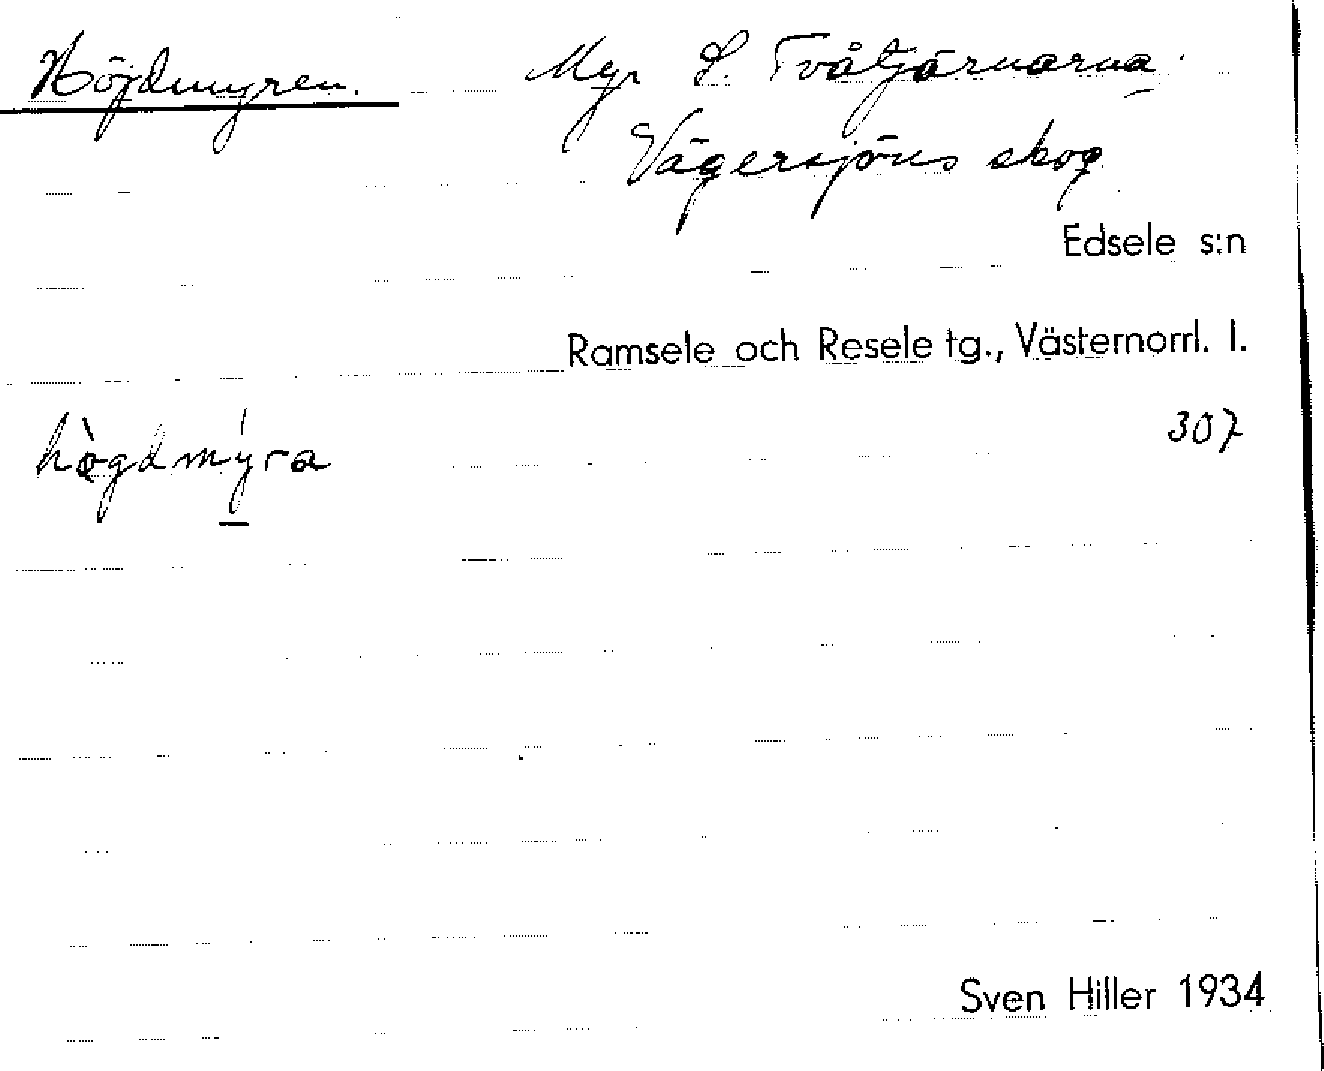 Höjdmyren. Myr S. Tvåtjärnarna.
Vägersjöns skog
Edsele s:n
Ramsele och Resele tg., Västernorrl. l.
hògdmýra 307
Sven Hiller 1934